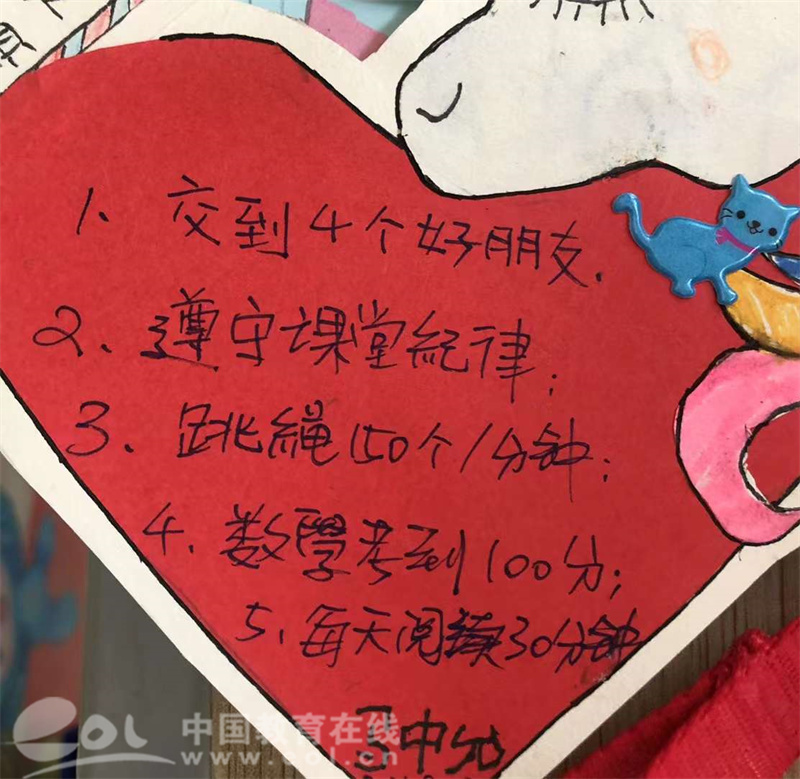 1、交到4个好朋友.
2、遵守课堂纪律;
3、跳繩150个/分钟;
4、数學考到100分;
5、每天阅读30分钟
eol 中国教育在线
www.eol.cn